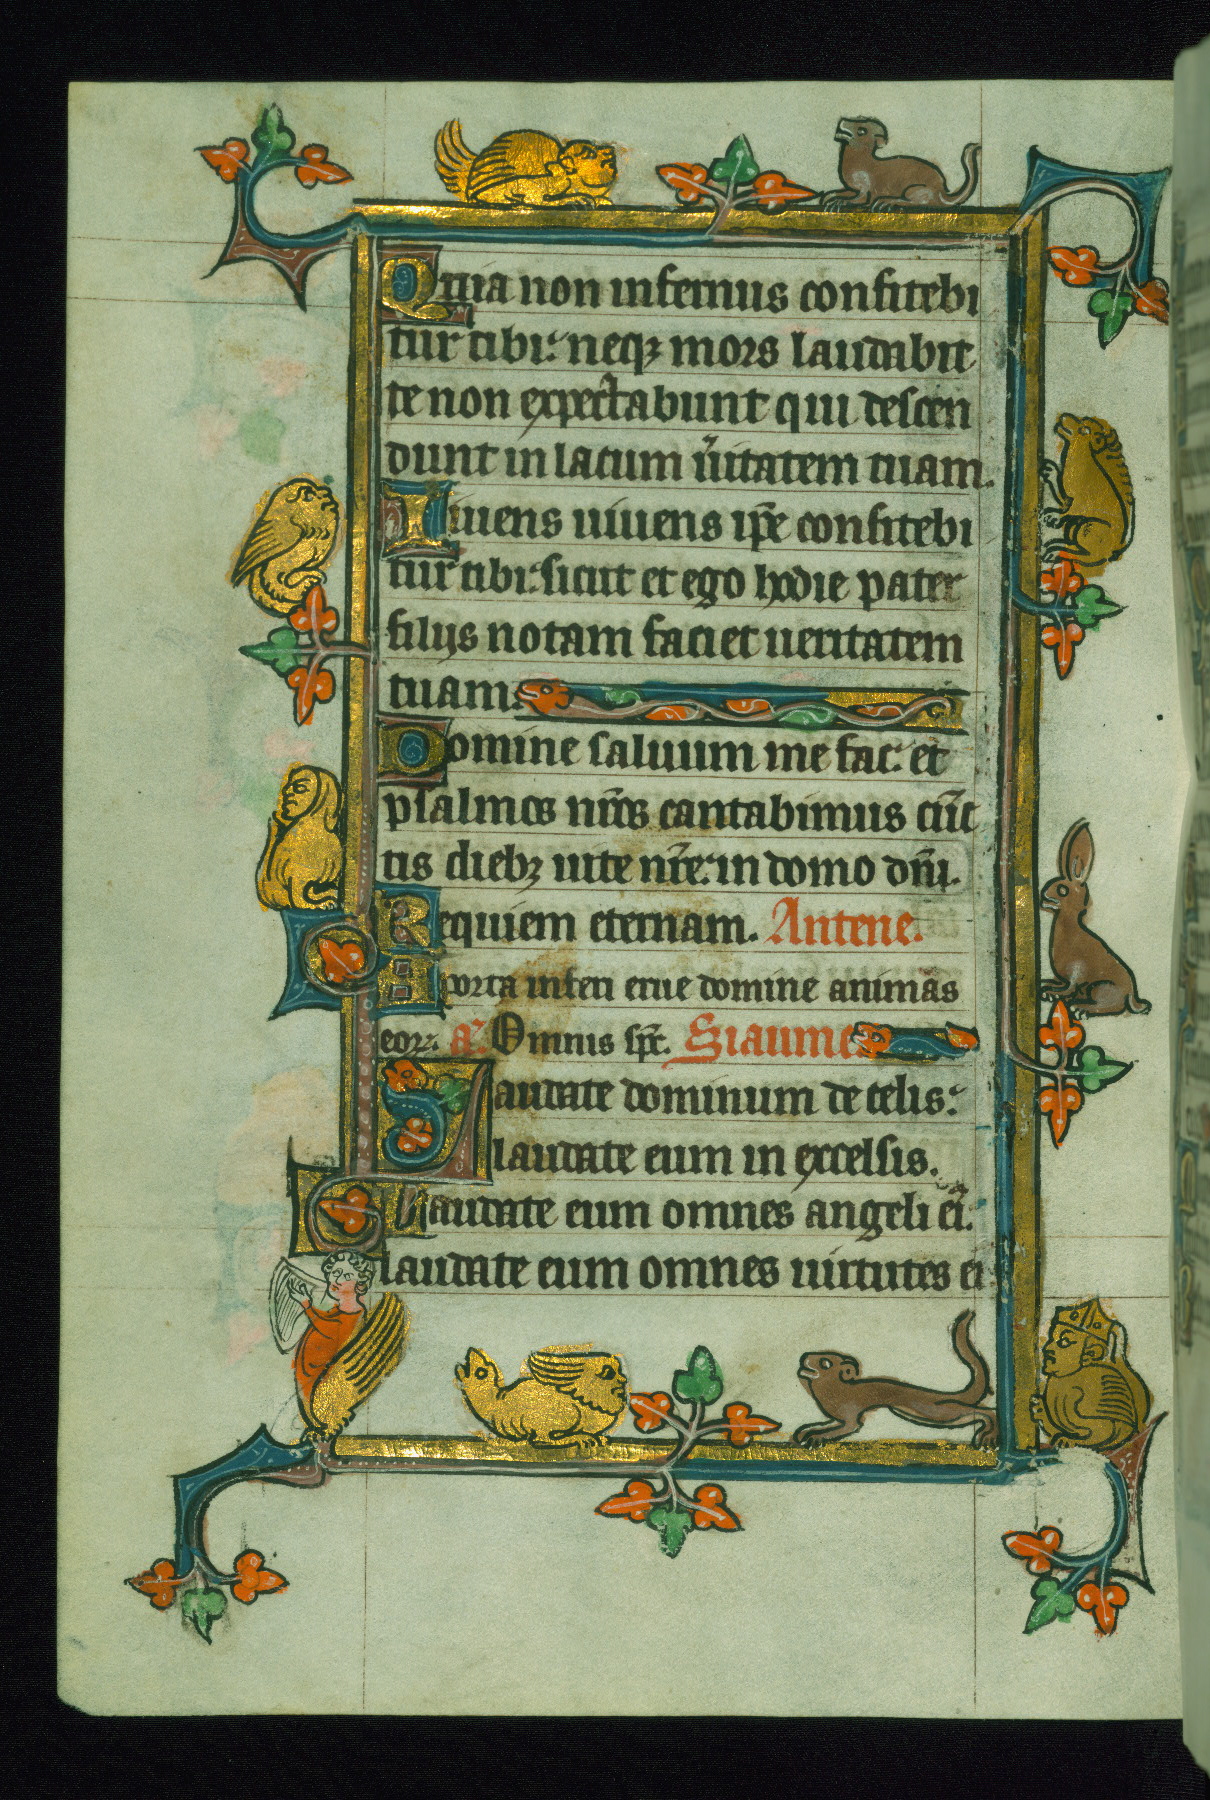 Quia non infernus confitebi
tur tibi: neqꝫ mors laudabit
te non expectabunt qui descen
dunt in lacum ũitatem tuam.
Viuens uiuens ip̃e confitebi
tur tibi: sicut et ego hodie pater
filijs notam faciet ueritatem
tuam.
Domine saluum me fac: et
psalmos nr̃os cantabimus cũc
tis diebꝫ uite nr̃e: in domo dñi.
Requiem eternam. Antene.
A porta inferi erue domine animas
eoꝝ. a. Omnis sp̃c. Siaume
Laudate dominum de celis:
laudate eum in excelsis.
Laudate eum omnes angeli ei:
laudate eum omnes uirtutes ei